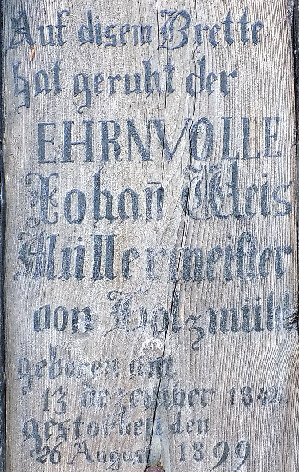 Auf disem Brette
hat geruht der
EHRNVOLLE
Johañ Weis
Müllermeister
von Holzmühl
geboren am
13 Dezember 184
gestorben den
26 August 1899